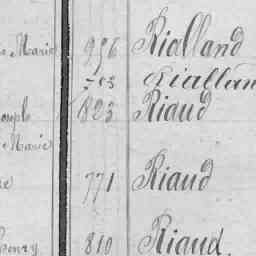 Marie 956 Rialland
753 Riallan
oseph 823 Riaud
Marie
771 Riaud
Henry 810 Riaud.